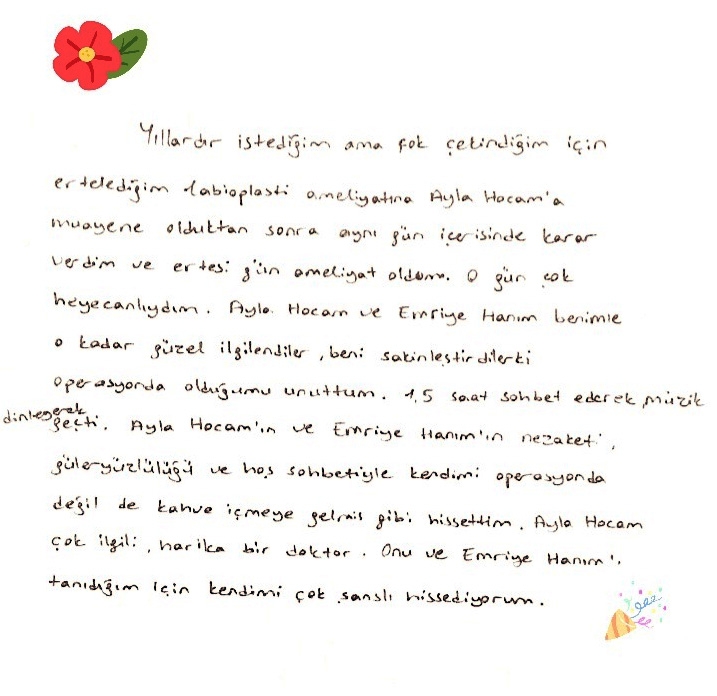 Yıllardır istediğim ama çok çekindiğim için
ertelediğim labioplasti ameliyatına Ayla Hocam'a
muayene olduktan sonra aynı gün içerisinde karar
verdim ve ertesi gün ameliyat oldum. O gün çok
heyecanlıydım. Ayla Hocam ve Emriye Hanım benimle
o kadar güzel ilgilendiler, beni sakinleştirdilerki
operasyonda olduğumu unuttum. 1,5 saat sohbet ederek, müzik
dinleyerek geçti. Ayla Hocam'ın ve Emriye Hanım'ın nezaketi,
güleryüzlülüğü ve hoş sohbetiyle kendimi operasyonda
değil de kahve içmeye gelmiş gibi hissettim. Ayla Hocam
çok ilgili, harika bir doktor. Onu ve Emriye Hanım'ı
tanıdığım için kendimi çok şanslı hissediyorum.